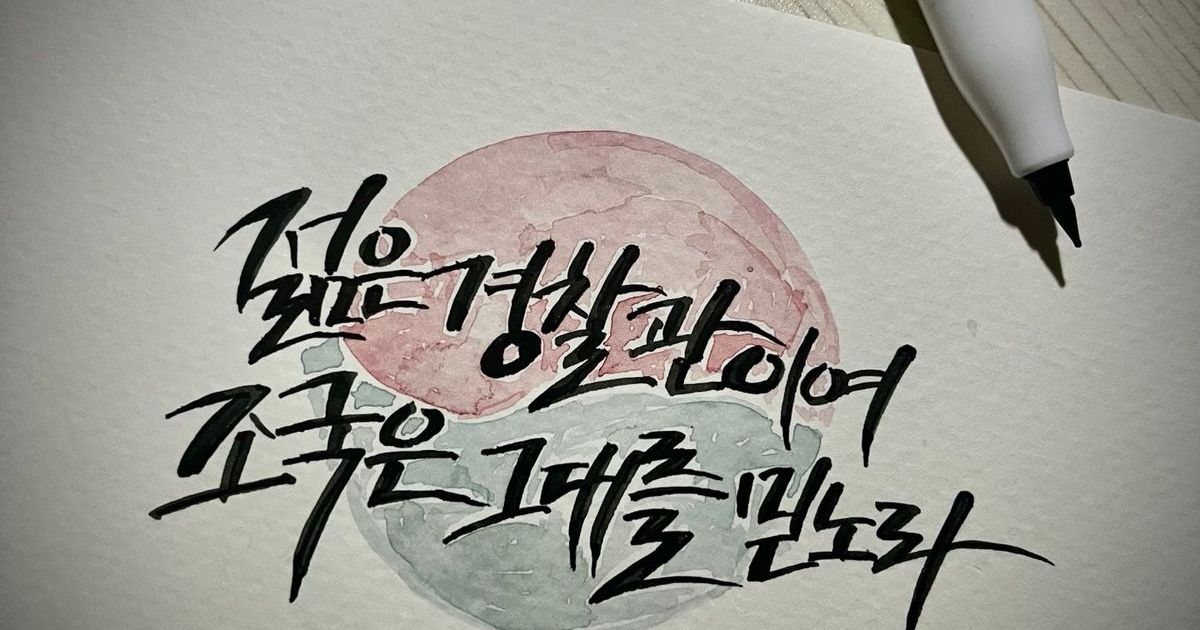 젊은 경찰관이여
조국은 그대를 믿노라